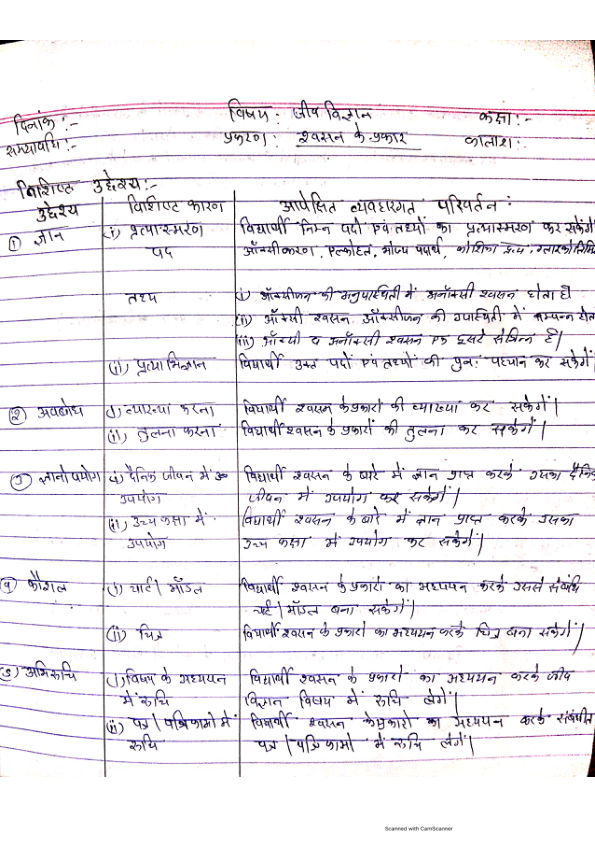 दिनांक :- विषय : जीव विज्ञान कक्षा :-
समयावधि :- प्रकरण : श्वसन के प्रकार कालांश :
विशिष्ट उद्देश्य :-
उद्देश्य विशिष्ट कारण अपेक्षित व्यवहारगत परिवर्तन :
① ज्ञान (i) प्रत्यास्मरण विद्यार्थी निम्न पदों एवं तथ्यों का प्रत्यास्मरण कर सकेंगे
पद ऑक्सीकरण, एल्कोहल, भोज्य पदार्थ, कोशिका
तथ्य (i) ऑक्सीजन की अनुपस्थिति में अनॉक्सी श्वसन होता है
(ii) ऑक्सी श्वसन, ऑक्सीजन की उपस्थिति में सम्पन्न होता
(iii) ऑक्सी व अनॉक्सी श्वसन एक दूसरे से भिन्न है।
(ii) प्रत्याभिज्ञान विद्यार्थी उक्त पदों एवं तथ्यों की पुनः पहचान कर सकेंगे।
② अवबोध (i) व्याख्या करना विद्यार्थी श्वसन के प्रकारों की व्याख्या कर सकेंगे।
(ii) तुलना करना विद्यार्थी श्वसन के प्रकारों की तुलना कर सकेंगे।
③ ज्ञानोपयोग (i) दैनिक जीवन में विद्यार्थी श्वसन के बारे में ज्ञान प्राप्त करके उसका दैनिक
उपयोग जीवन में उपयोग कर सकेंगे।
(ii) उच्च कक्षा में विद्यार्थी श्वसन के बारे में ज्ञान प्राप्त करके उसका
उपयोग उच्च कक्षा में उपयोग कर सकेंगे।
④ कौशल (i) चार्ट / मॉडल विद्यार्थी श्वसन के प्रकारों का अध्ययन करके उससे संबंधि
चार्ट / मॉडल बना सकेंगे।
(ii) चित्र विद्यार्थी श्वसन के प्रकारों का अध्ययन करके चित्र बना सकेंगे।
⑤ अभिरूचि (i) विषय के अध्ययन विद्यार्थी श्वसन के प्रकारों का अध्ययन करके जीव
में रूचि विज्ञान विषय में रूचि लेंगे।
(ii) पत्र / पत्रिकाओं में विद्यार्थी श्वसन के प्रकारों का अध्ययन करके संबंधीत
रूचि पत्र / पत्रिकाओं में रूचि लेंगे।
Scanned with CamScanner